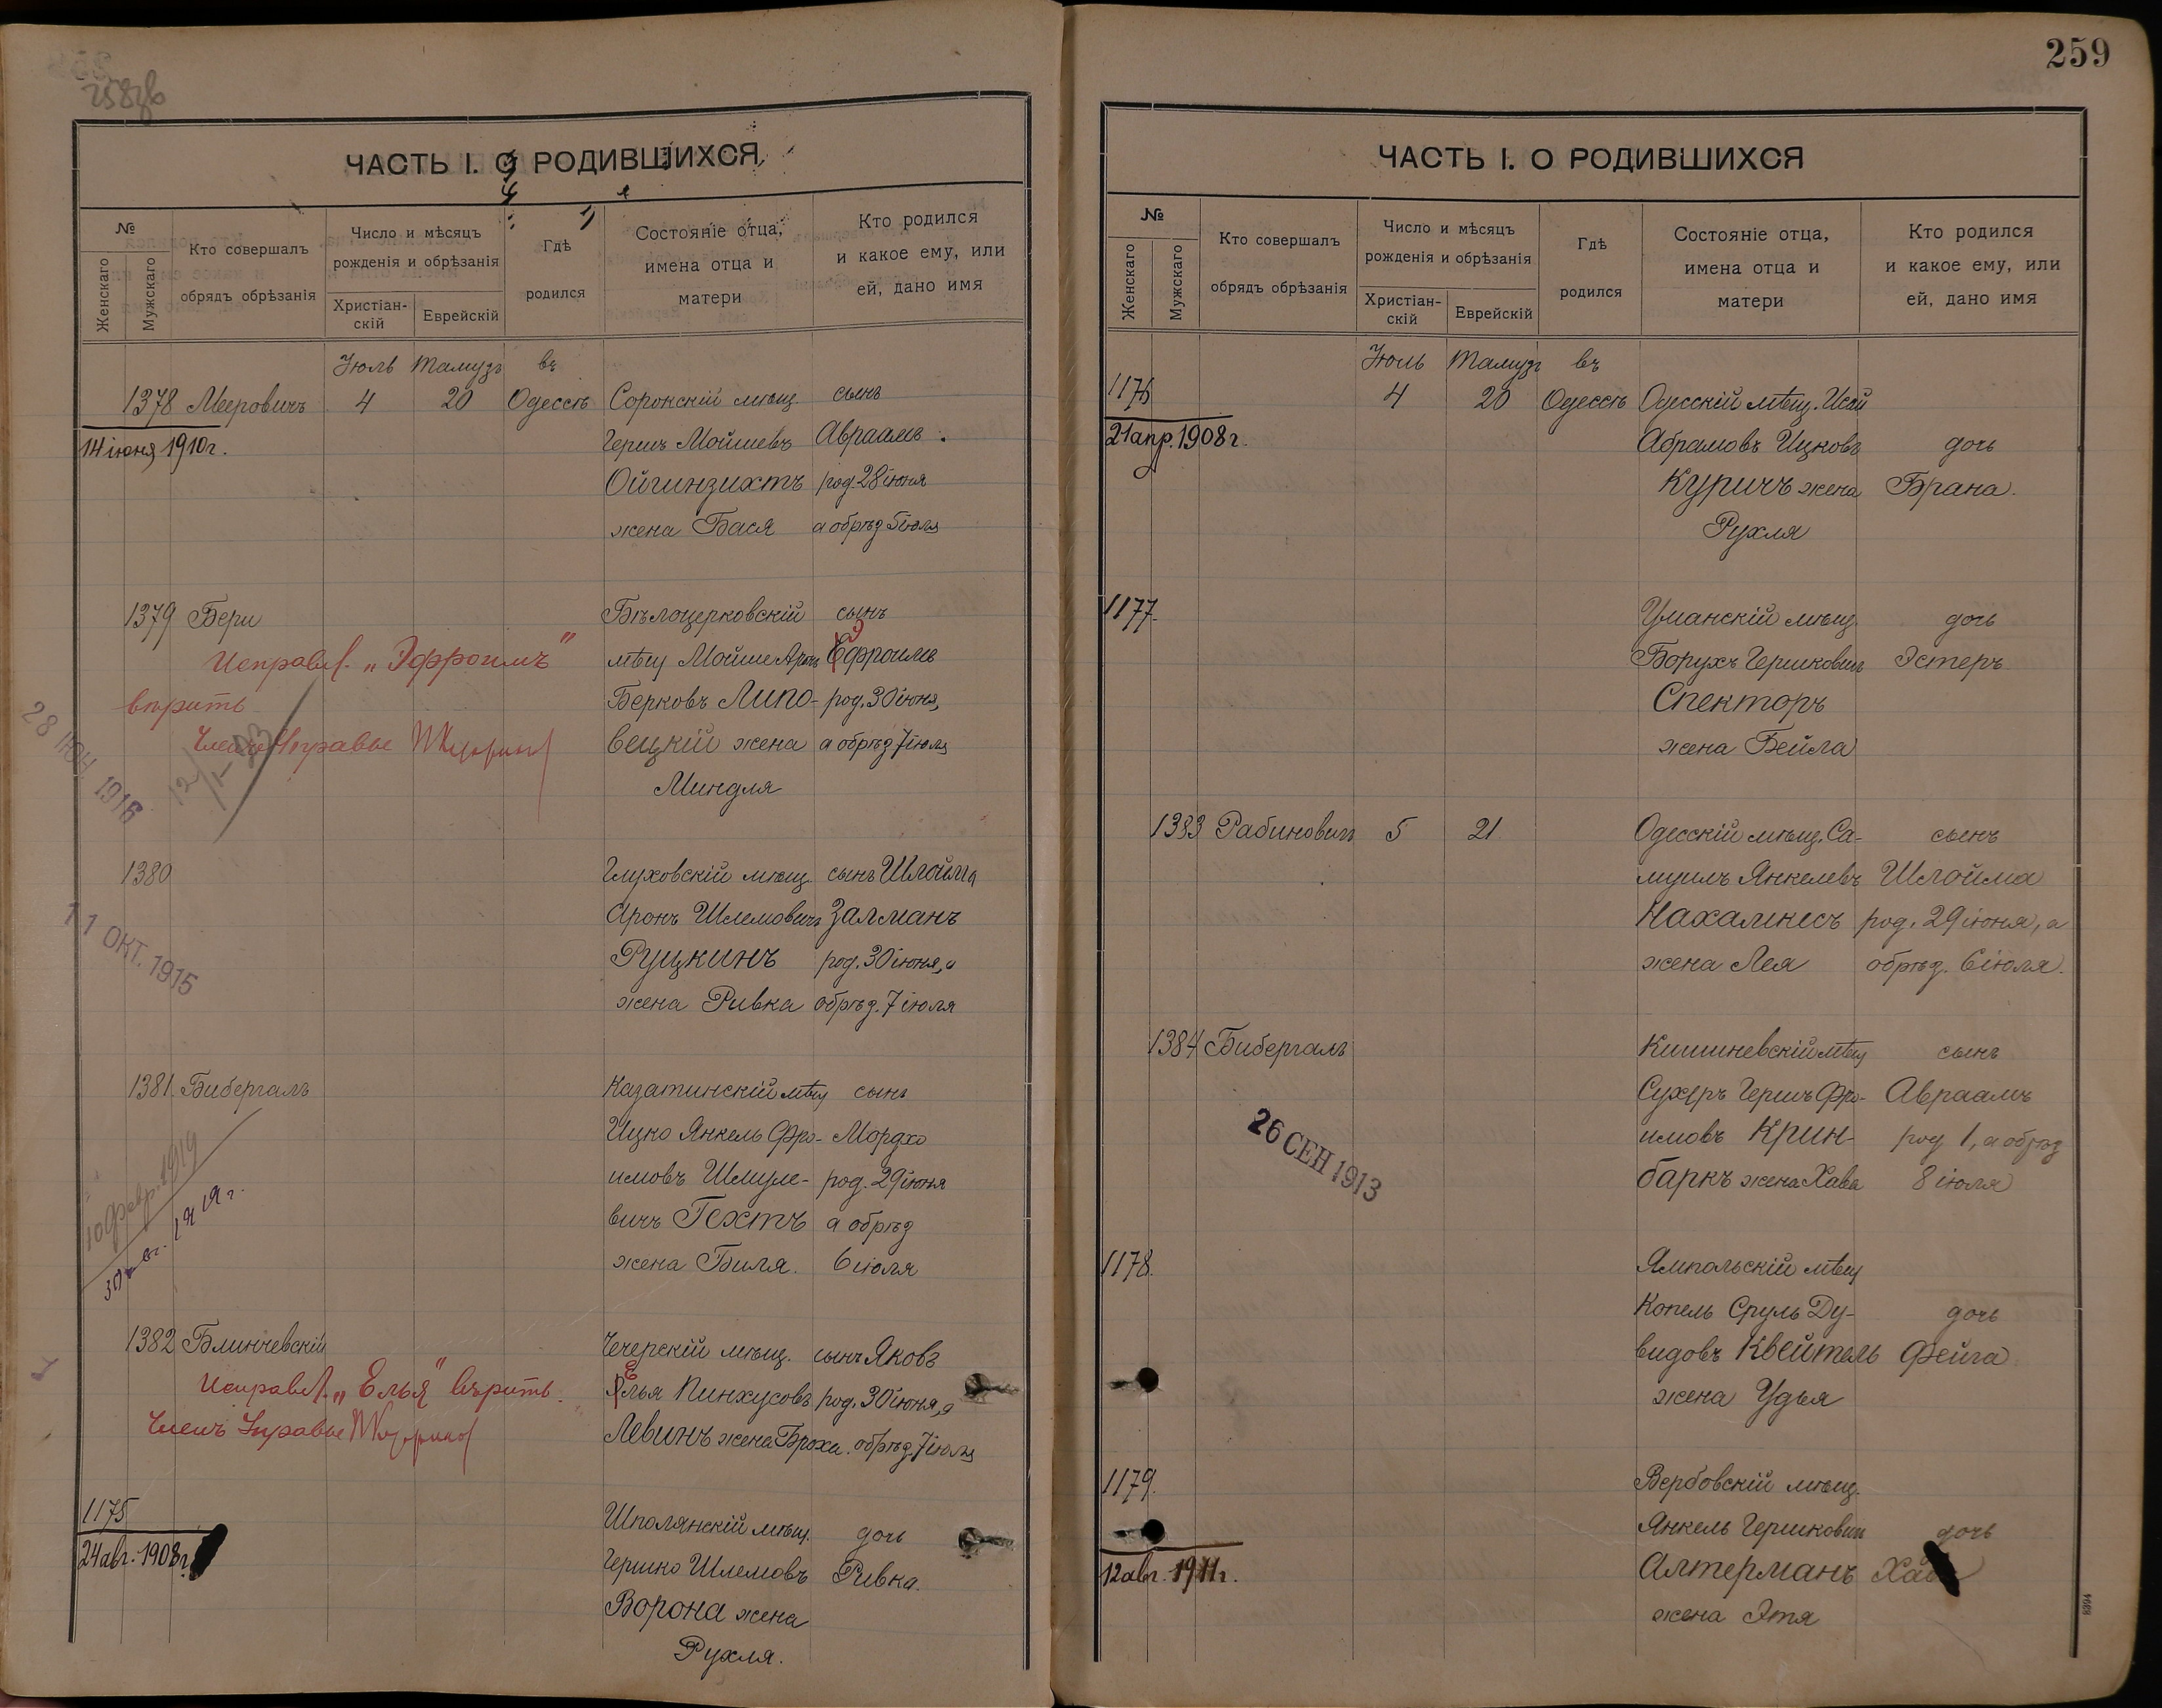 258 об
ЧАСТЬ I. О РОДИВШИХСЯ
№
Женскаго
Мужскаго
Кто совершалъ
обрядъ обрѣзанія
Число и мѣсяцъ
рожденія и обрѣзанія
Христіан-
скій
Еврейскій
Гдѣ
родился
Состояніе отца,
имена отца и
матери
Кто родился
и какое ему, или
ей, дано имя
Іюль Тамузъ въ
1378 Мееровичъ 4 20 Одессѣ Сорокскій мѣщ. сынъ
14 іюня 1910 г. Гершъ Мойшевъ Авраамъ.
Ойгинзихтъ род. 28 іюня
жена Бася а обрѣз 5 іюля
1379 Бери Бѣлоцерковскій сынъ
Исправл. „Эфроимъ" мѣщ Мойше Аронъ Ефроимъ
вѣрить Берковъ Липо- род. 30 іюня,
Членъ Управы вецкій жена а обрѣз 7 іюля
Миндля
28 ІЮН. 1916
1380 Глуховскій мѣщ. сынъ Шлойма
Аронъ Шлемовичъ Залманъ
11 ОКТ. 1915
Руцкинъ род. 30 іюня, а
жена Ривка обрѣз. 7 іюля
1381 Бибергалъ Казатинскій мѣщ сынъ
Ицко Янкель Фро- Мордхо
имовъ Шмуле- род. 29 іюня
10 февр. 1919
вичъ Гехтъ а обрѣз
1919 г.
жена Биля. 6 іюля
1382 Блинчевскій Чечерскій мѣщ. сынъ Яковъ
Исправл. „Елья" вѣрить. Елья Пинхусовъ род. 30 іюня, а
Членъ Управы Левинъ жена Броха. обрѣз. 7 іюля
1175 Шполянскій мѣщ. дочь
24 авг. 1908 г. Гершко Шлемовъ Ривка.
Ворона жена
Рухля.
259
ЧАСТЬ I. О РОДИВШИХСЯ
№
Женскаго
Мужскаго
Кто совершалъ
обрядъ обрѣзанія
Число и мѣсяцъ
рожденія и обрѣзанія
Христіан-
скій
Еврейскій
Гдѣ
родился
Состояніе отца,
имена отца и
матери
Кто родился
и какое ему, или
ей, дано имя
Іюль Тамузъ въ
1176 4 20 Одессѣ Одесскій мѣщ. Исай
21 апр. 1908 г. Абрамовъ Ицковъ дочь
Куричъ жена Брана.
Рухля
1177. Уманскій мѣщ. дочь
Борухъ Гершковичъ Эстеръ
Спекторъ
жена Бейла
1383 Рабиновичъ 5 21 Одесскій мѣщ. Са- сынъ
муилъ Янкелевъ Шлойма
Нахамкесъ род. 29 іюня, а
жена Лея обрѣз. 6 іюля.
1384 Бибергалъ Кишиневскій мѣщ сынъ
Сухеръ Гершъ Фро- Авраамъ
26 СЕН 1913
имовъ Крин- род 1, а обрѣз
баркъ жена Хава 8 іюля
1178. Ямпольскій мѣщ
Копель Сруль Ду- дочь
видовъ Квейтель Фейга
жена Удья
1179. Вербовскій мѣщ.
Янкель Гершковичъ дочь
12 авг. 1911 г. Алтерманъ
жена Этя
8394